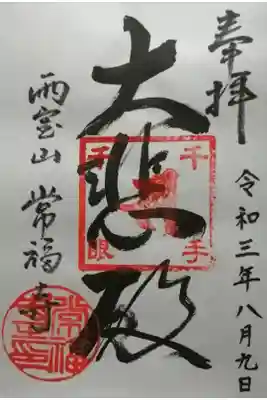 奉拝
令和三年八月九日
大悲殿
千手
千眼
雨宝山 常福寺
常福
寺印